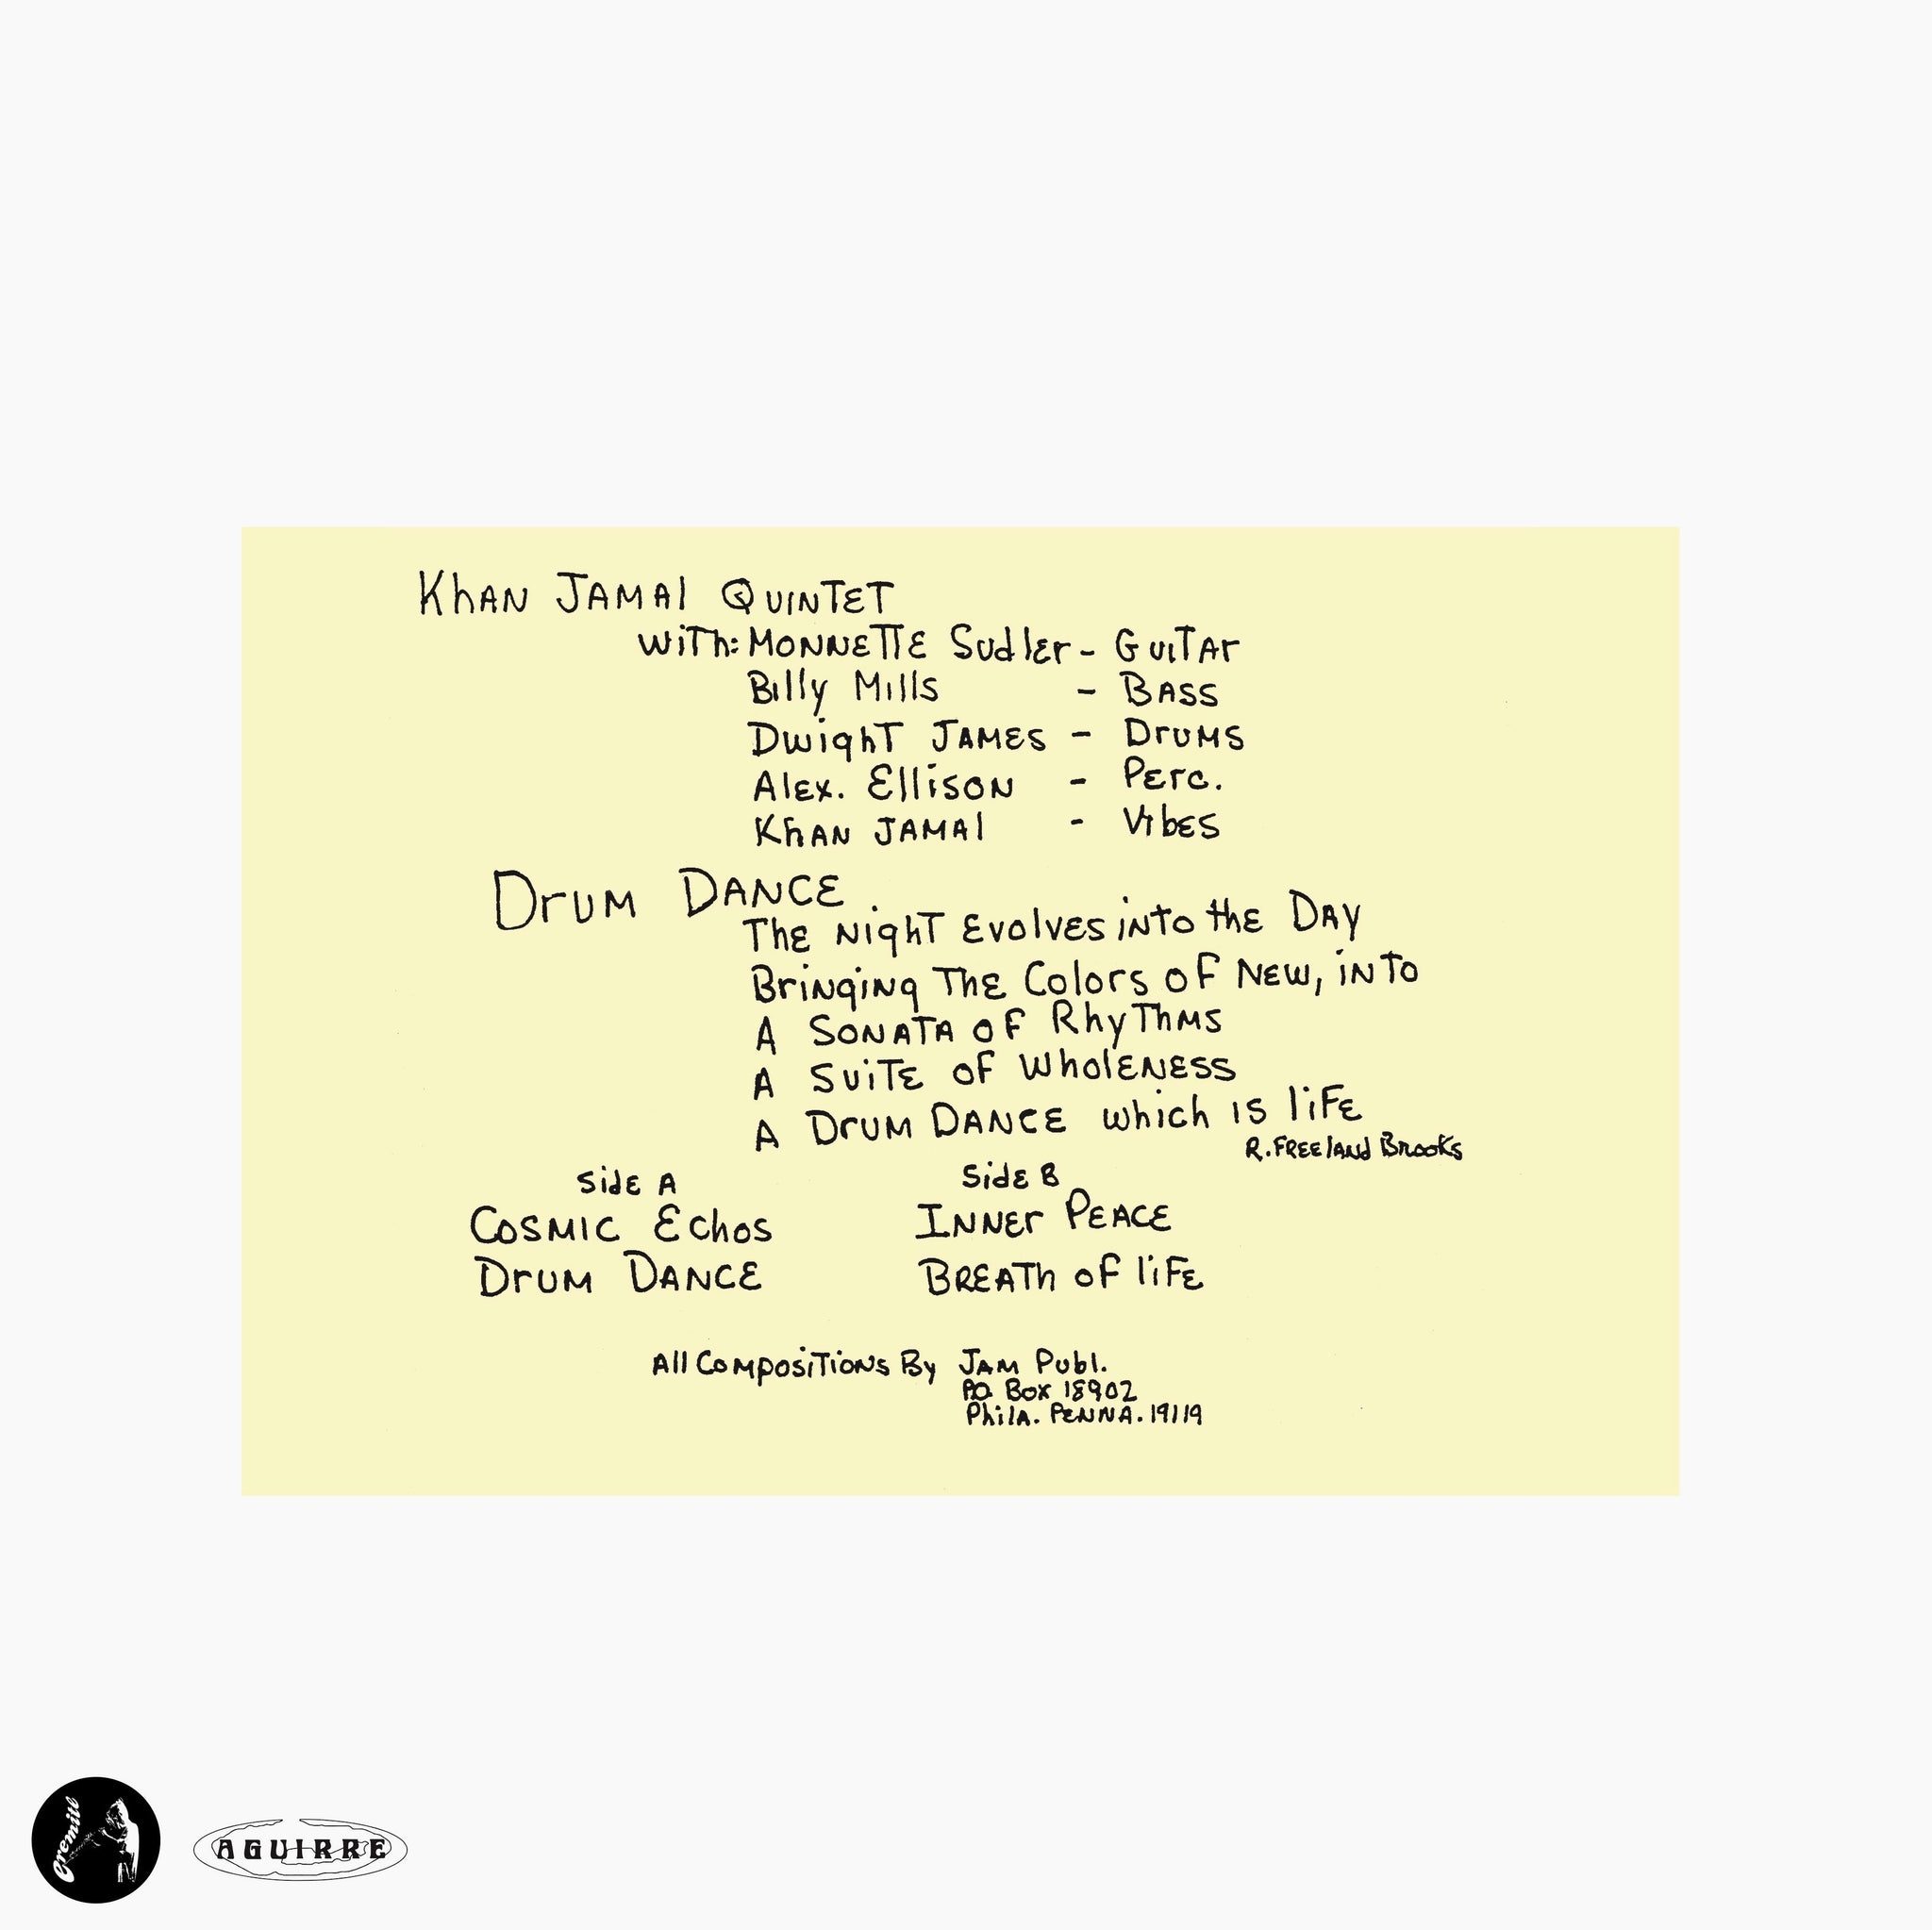 Khan Jamal Quintet
with: Monnette Sudler - Guitar
Billy Mills - Bass
Dwight James - Drums
Alex. Ellison - Perc.
Khan Jamal - Vibes
Drum Dance
The Night Evolves into the Day
Bringing The Colors of New, into
A Sonata of Rhythms
A Suite of Wholeness
A Drum Dance which is life
R. Freeland Brooks
Side A
Cosmic Echos
Drum Dance
Side B
Inner Peace
Breath of life
All Compositions By Jam Publ.
P.O. Box 18902
Phila. Penna. 19119
eremite
AGUIRRE